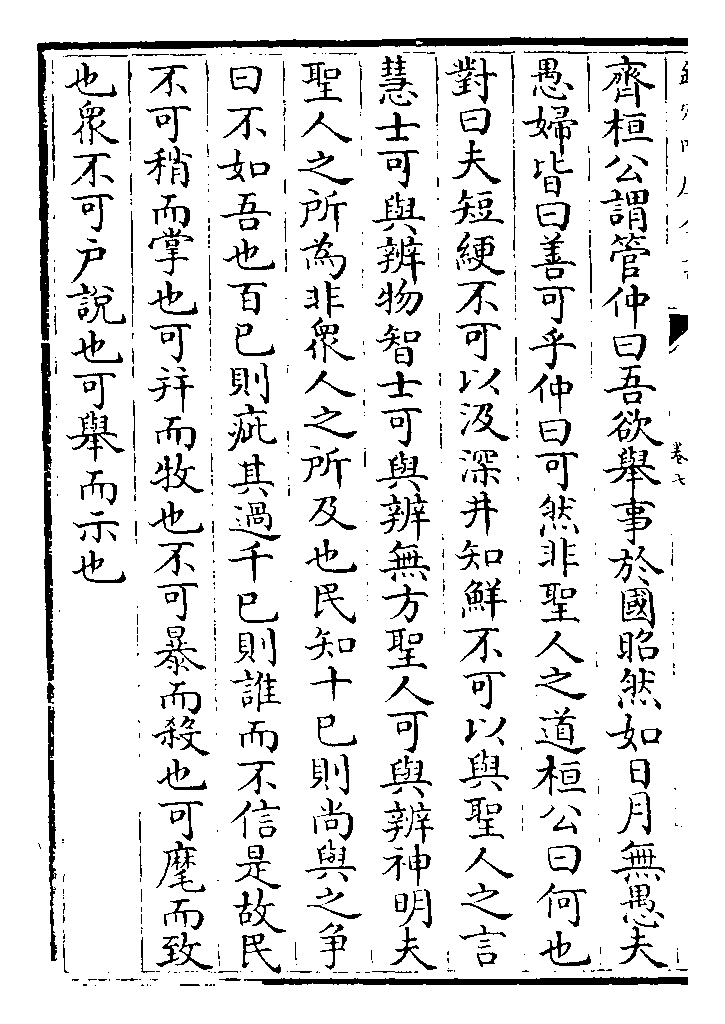 卷七
齊桓公謂管仲曰吾欲舉事於國昭然如日月無愚夫
愚婦皆曰善可乎仲曰可然非聖人之道桓公曰何也
對曰夫短綆不可以汲深井知鮮不可以與聖人之言
慧士可與辨物智士可與辨無方聖人可與辨神明夫
聖人之所為非衆人之所及也民知十已則尚與之爭
曰不如吾也百已則疵其過千已則誰而不信是故民
不可稍而掌也可并而牧也不可暴而殺也可麾而致
也衆不可户說也可舉而示也